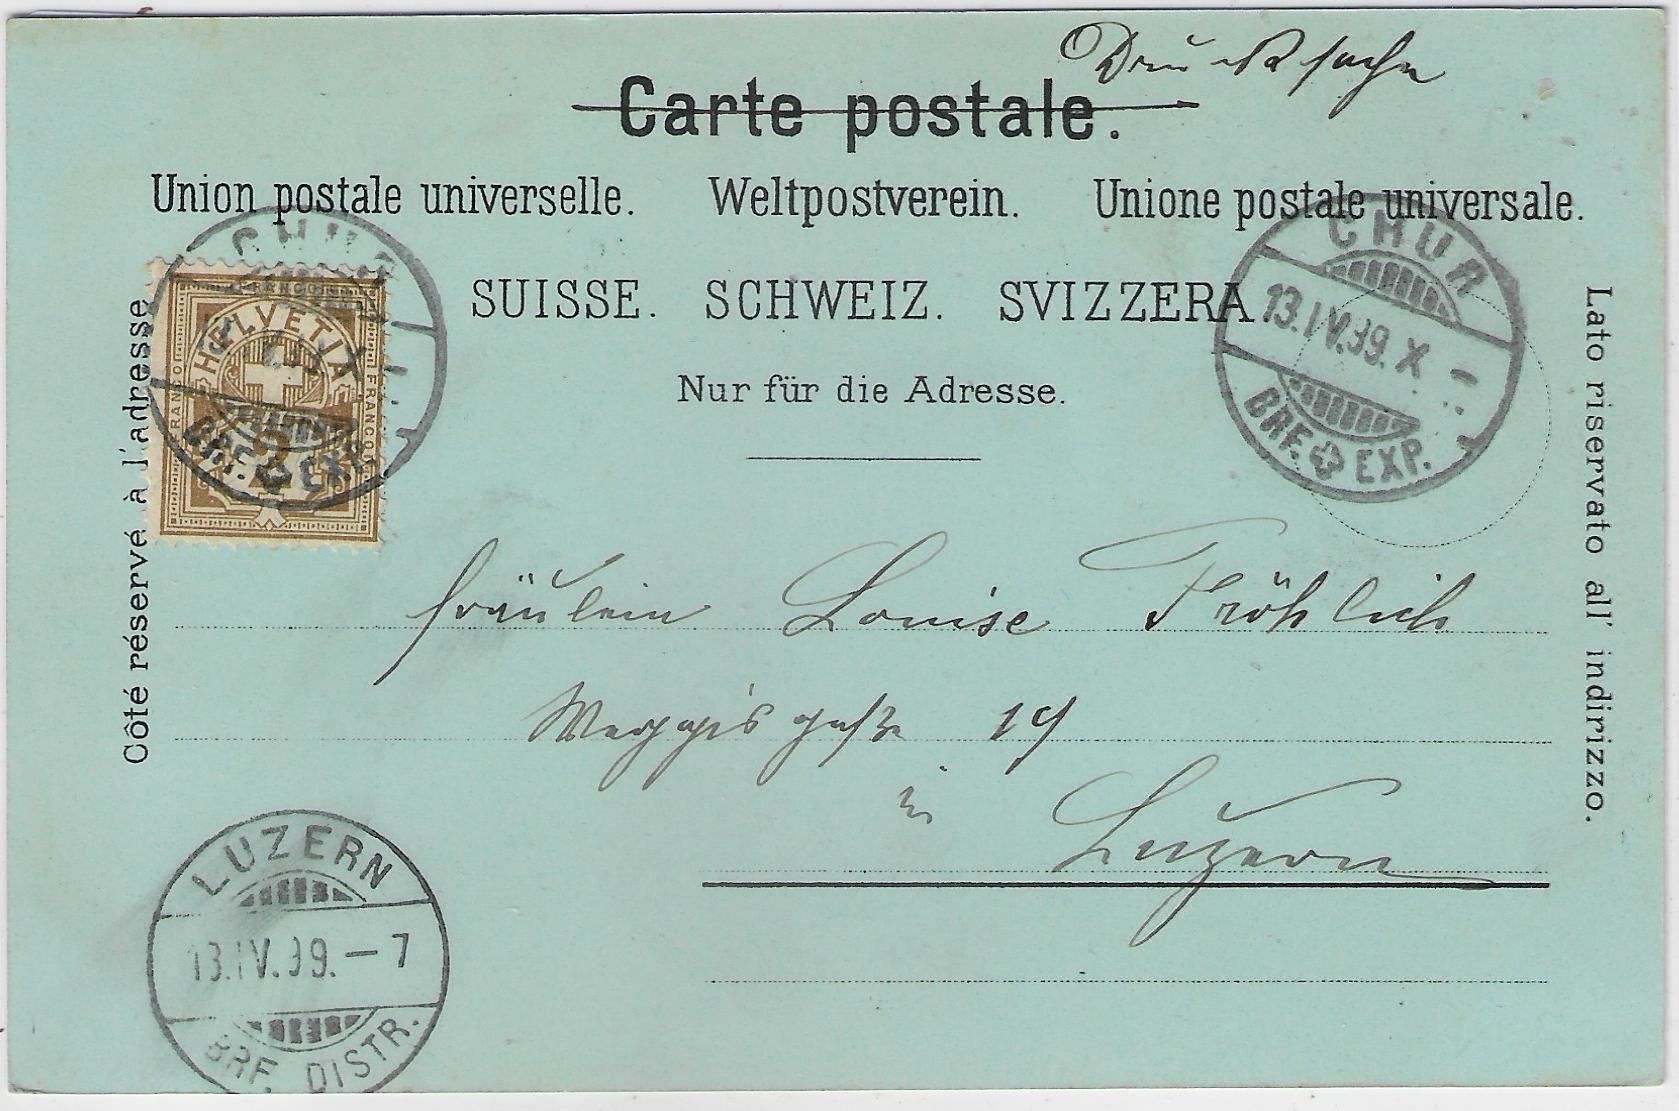 Drucksache
Carte postale.
Union postale universelle. Weltpostverein. Unione postale universale.
SUISSE. SCHWEIZ. SVIZZERA
Nur für die Adresse.
Côté réservé à l'adresse
Lato riservato all' indirizzo.
FRANCO
HELVETIA
FRANCO
2
CHUR
BRF. EXP.
CHUR
13.IV.99.X
BRF. EXP.
Fräulein Louise Fröhlich
Weggisgasse 19
in Luzern
LUZERN
13.IV.99.–7
BRF. DISTR.